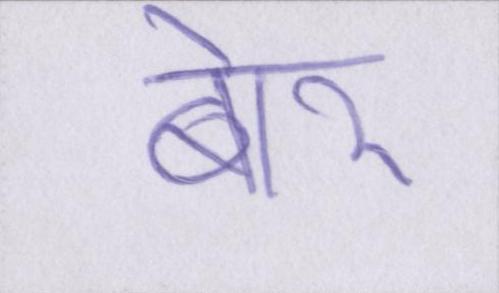 बोर